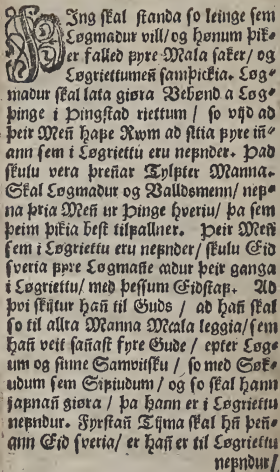 ÞIng skal standa so leinge sem
Løgmadur vill/ og hønum þik-
er falled fyre Mala saker/ og
Løgriettumeñ samþickia. Løg-
madur skal lata giøra Vebønd a Løg-
þinge i Þingstad riettum / so vijd ad
þeir Meñ hafe Rwm ad sitia fyre iñ-
ann sem i Løgriettu eru nefnder. Þad
skulu vera þreñar Tylfter Manna.
Skal Løgmadur og Valldsmenn/ nef-
na þria Meñ ur Þinge hveriu/ þa sem
þeim þikia best tilfallner. Þeir Meñ
sem i Løgriettu eru nefnder/ skulu Eid
sveria fyre Løgmañe adur þeir ganga
i Løgriettu/ med þessum Eidstaf. Ad
þvi skijtur hañ til Guds / ad hañ skal
so til allra Manna Mæla leggia/ sem
hañ veit sañast fyre Gude / epter Løg-
um og sinne Samvitsku / so med Søk-
udum sem Sijkiudum/ og so skal hann
jafnañ giøra / þa hann er i Løgriettu
nefndur. Fyrstañ Tijma skal hñ þeñ-
añn Eid sveria/ er hañ er til Løgriettu
nefndur/